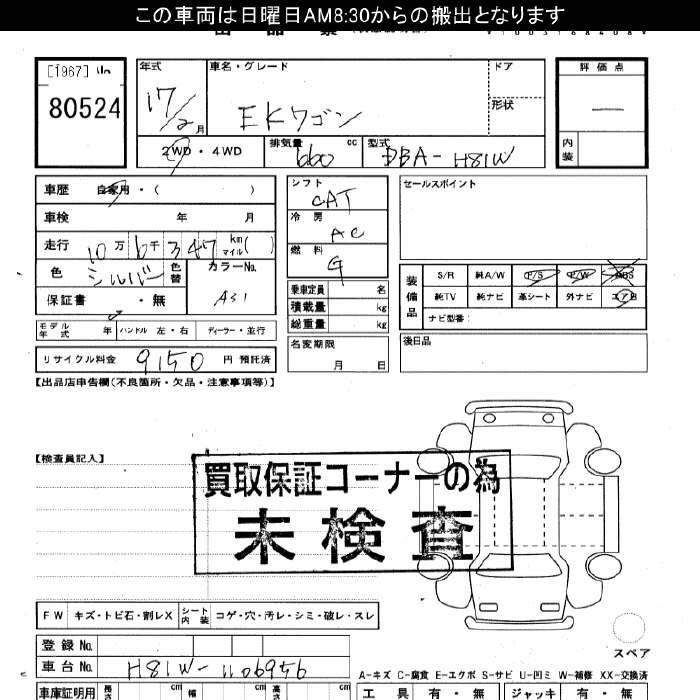 この車両は日曜日AM8:30からの搬出となります
[1967]
80524
年式
車名・グレード
ドア
評価点
17/2月
EKワゴン
形状
内装
2WD・4WD
排気量 660 cc
型式 DBA-H81W
車歴 自家用・( )
シフト CAT
セールスポイント
車検 年 月
冷房 AC
走行 10万6千347 km マイル( )
燃料 G
色 シルバー 色替
カラーNo. A31
装備品
S/R 純A/W P/S P/W ABS
純TV 純ナビ 革シート 外ナビ エアB
ナビ型番:
保証書 ・無
乗車定員 名
積載量 kg
総重量 kg
モデル年式 年 ハンドル 左・右 ディーラー・並行
後日品
名変期限 月 日
リサイクル料金 9150 円 預託済
【出品店申告欄(不良箇所・欠品・注意事項等)】
【検査員記入】
買取保証コーナーの為
未検査
FW キズ・トビ石・割レX シート内装 コゲ・穴・汚レ・シミ・破レ・スレ
登録No.
スペア
車台No. H81W-1106956
A-キズ C-腐食 E-エクボ S-サビ U-凹ミ W-補修 XX-交換済
車庫証明用 長さ cm 幅 cm 高さ cm
工具 有・無 ジャッキ 有・無